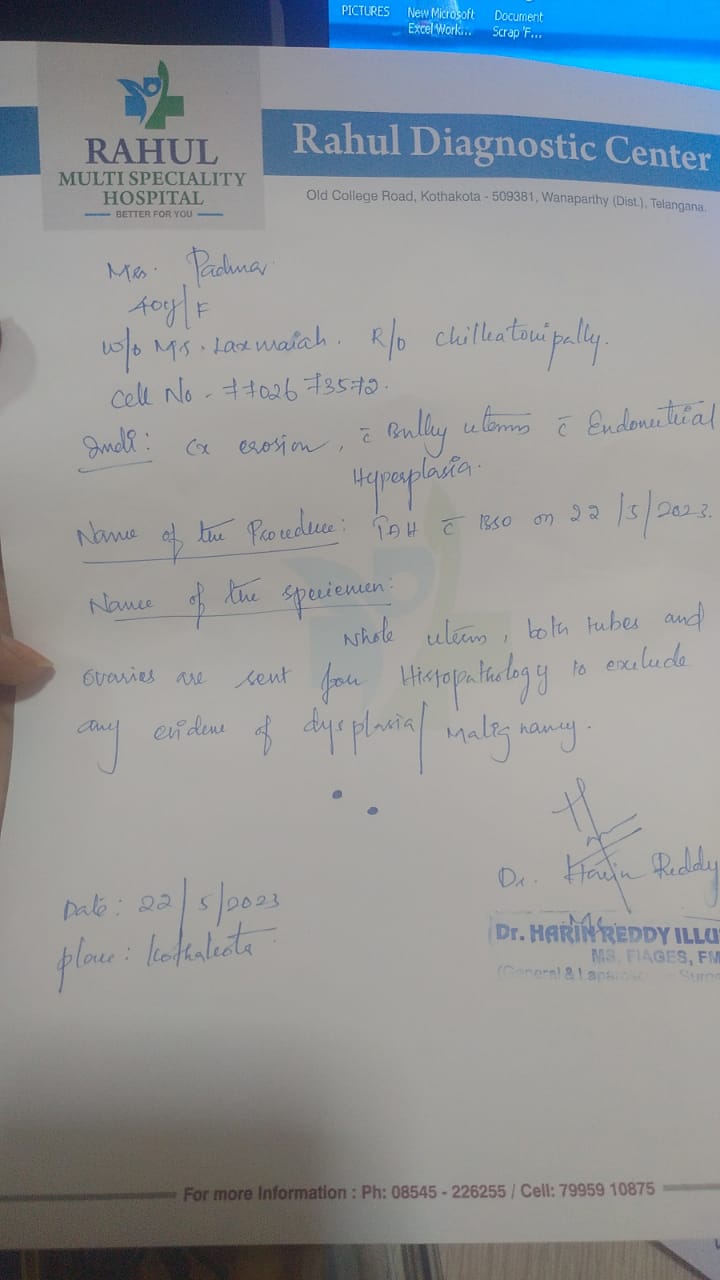 PICTURES
New Microsoft Excel Work...
Document Scrap 'F...
RAHUL
MULTI SPECIALITY
HOSPITAL
BETTER FOR YOU
Rahul Diagnostic Center
Old College Road, Kothakota - 509381, Wanaparthy (Dist.), Telangana.
Mrs. Padma
40y/F
w/o Mr. Laxmaiah. R/o
Cell No - 77026 73572.
Indi: Cx erosion, c̄ Bulky uterus c̄ Endometrial
Hyperplasia.
Name of the Procedure: TAH c̄ BSO on 22/5/2023.
Name of the specimen:
Whole uterus, both tubes and
ovaries are sent for Histopathology to exclude
any evidence of dysplasia/ Malignancy.
Dr. Harin Reddy
Dr. HARIN REDDY ILLU
MS, FIAGES, FM
(General & Laparosc
Date: 22/5/2023
place: Kothakota
For more Information : Ph: 08545 - 226255 / Cell: 79959 10875